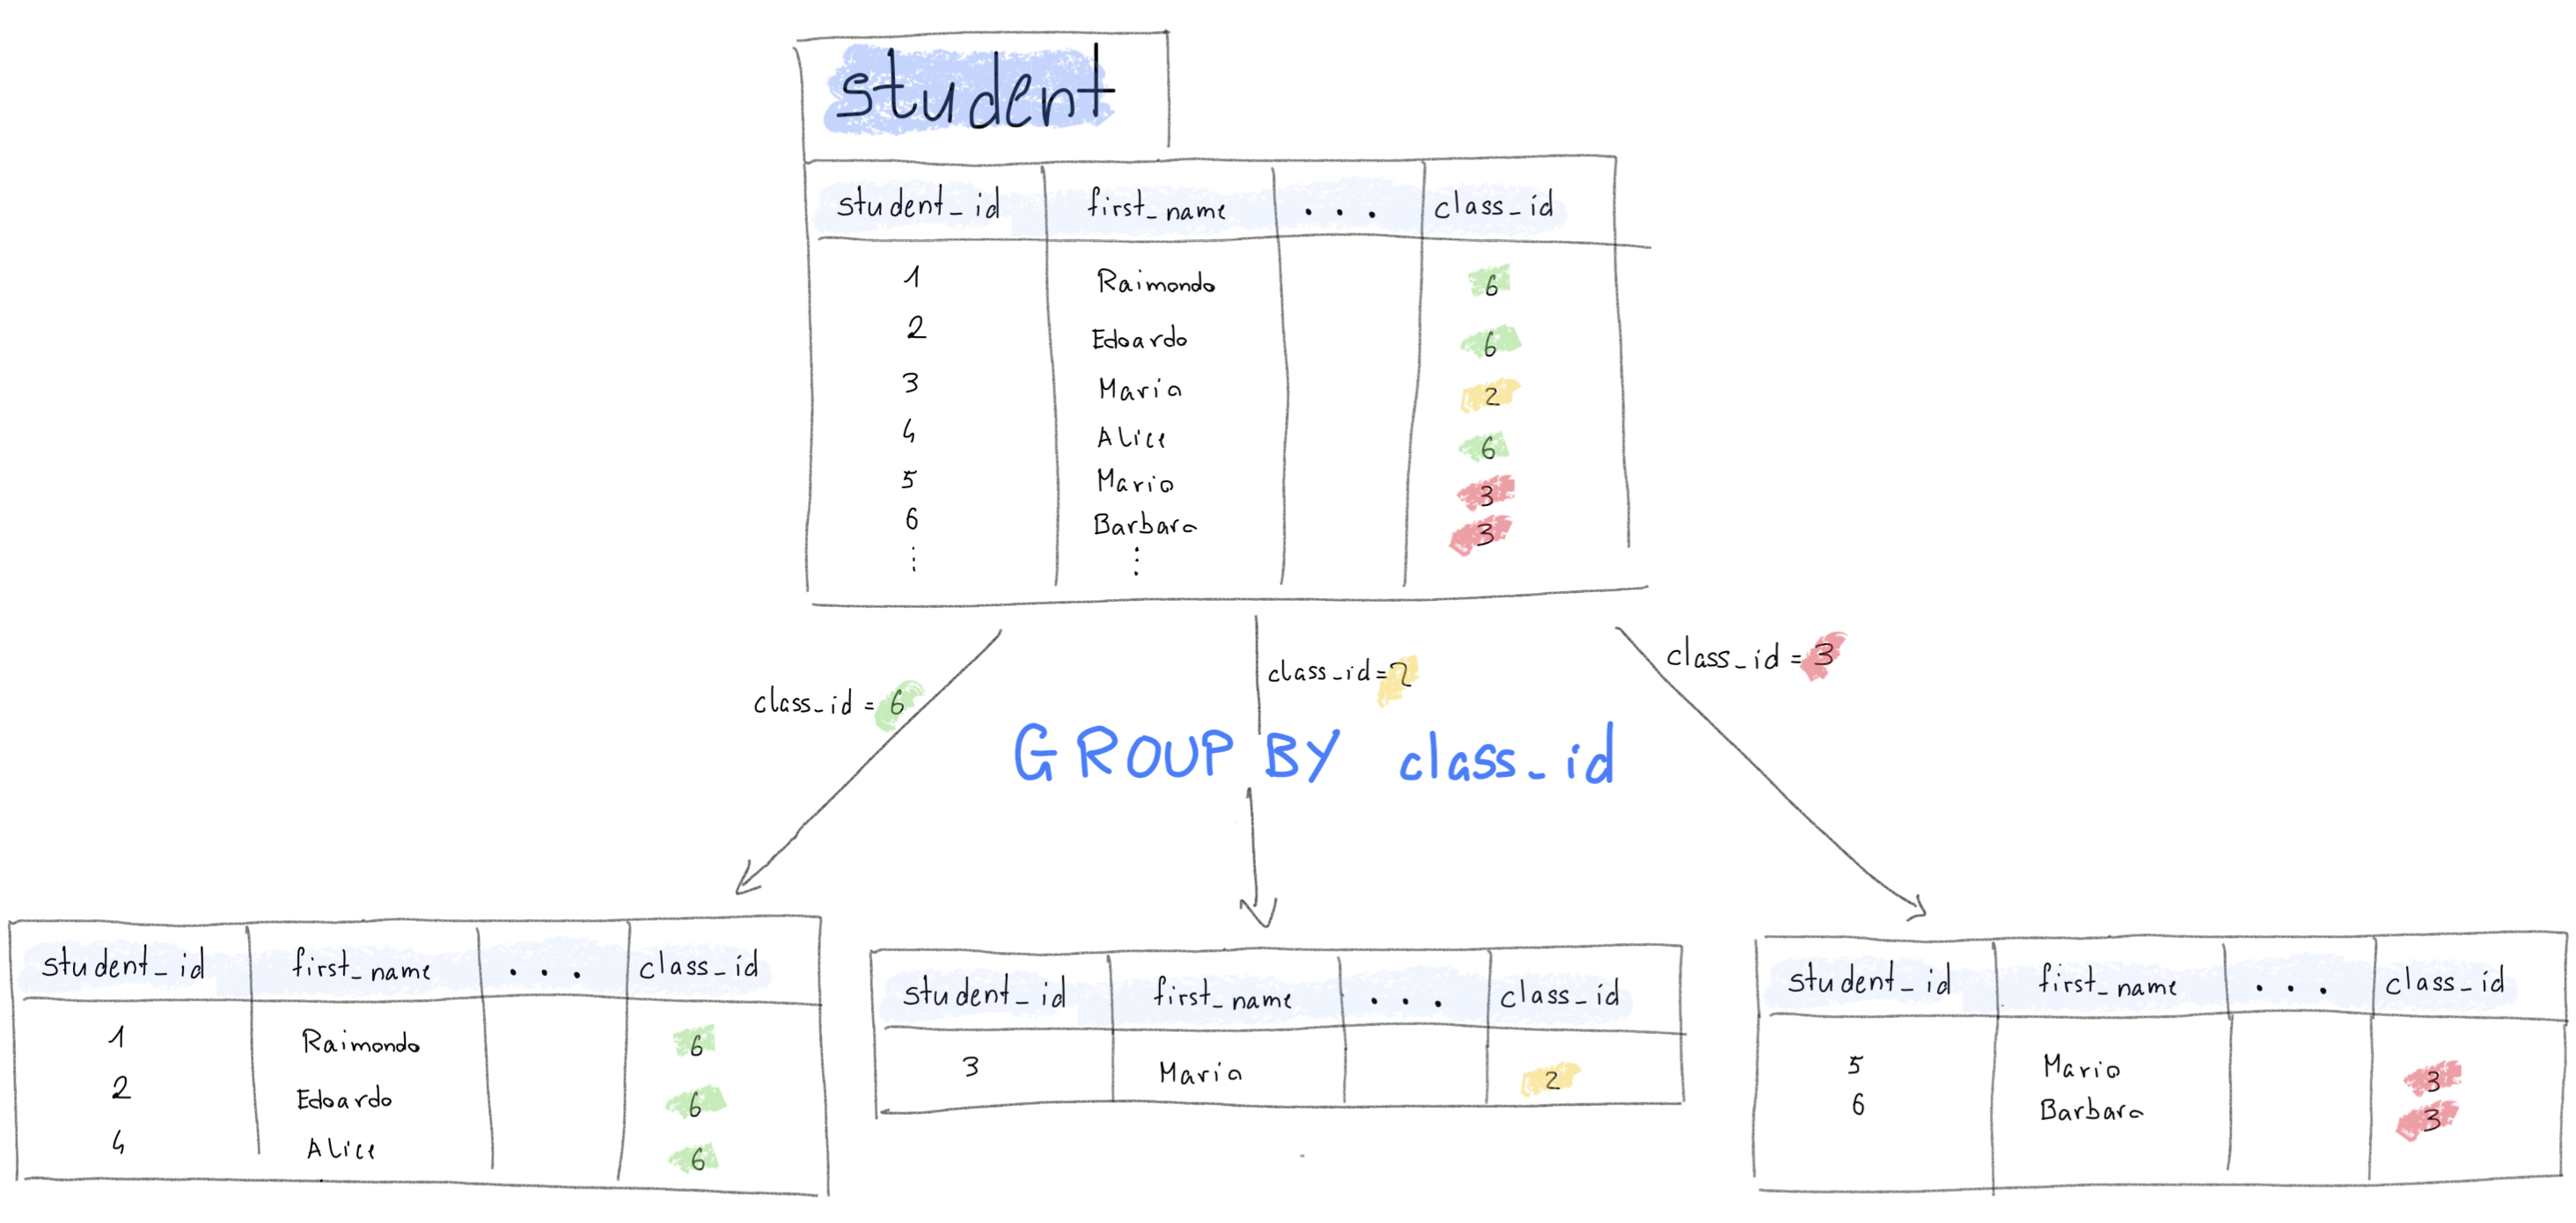 student
student_id first_name ... class_id
1 Raimondo 6
2 Edoardo 6
3 Maria 2
4 Alice 6
5 Mario 3
6 Barbara 3
class_id = 6
class_id = 2
class_id = 3
GROUP BY class_id
student_id first_name ... class_id
1 Raimondo 6
2 Edoardo 6
4 Alice 6
student_id first_name ... class_id
3 Maria 2
student_id first_name ... class_id
5 Mario 3
6 Barbara 3